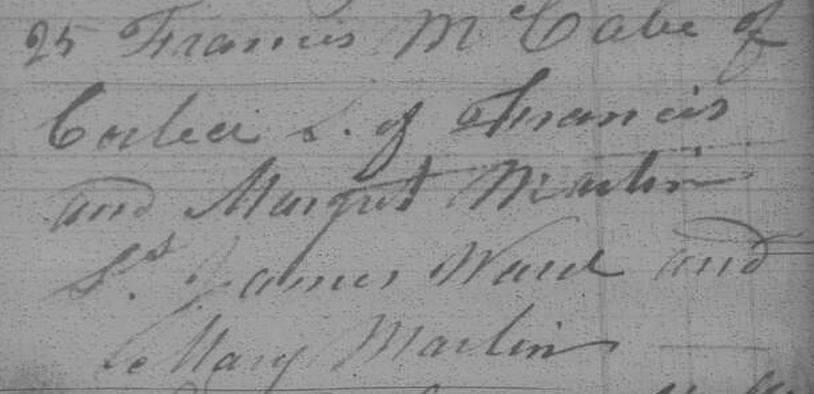 25 Francis McCabe of
S. of Francis
and Margret Martin
Ss. James Ward and
Mary Martin